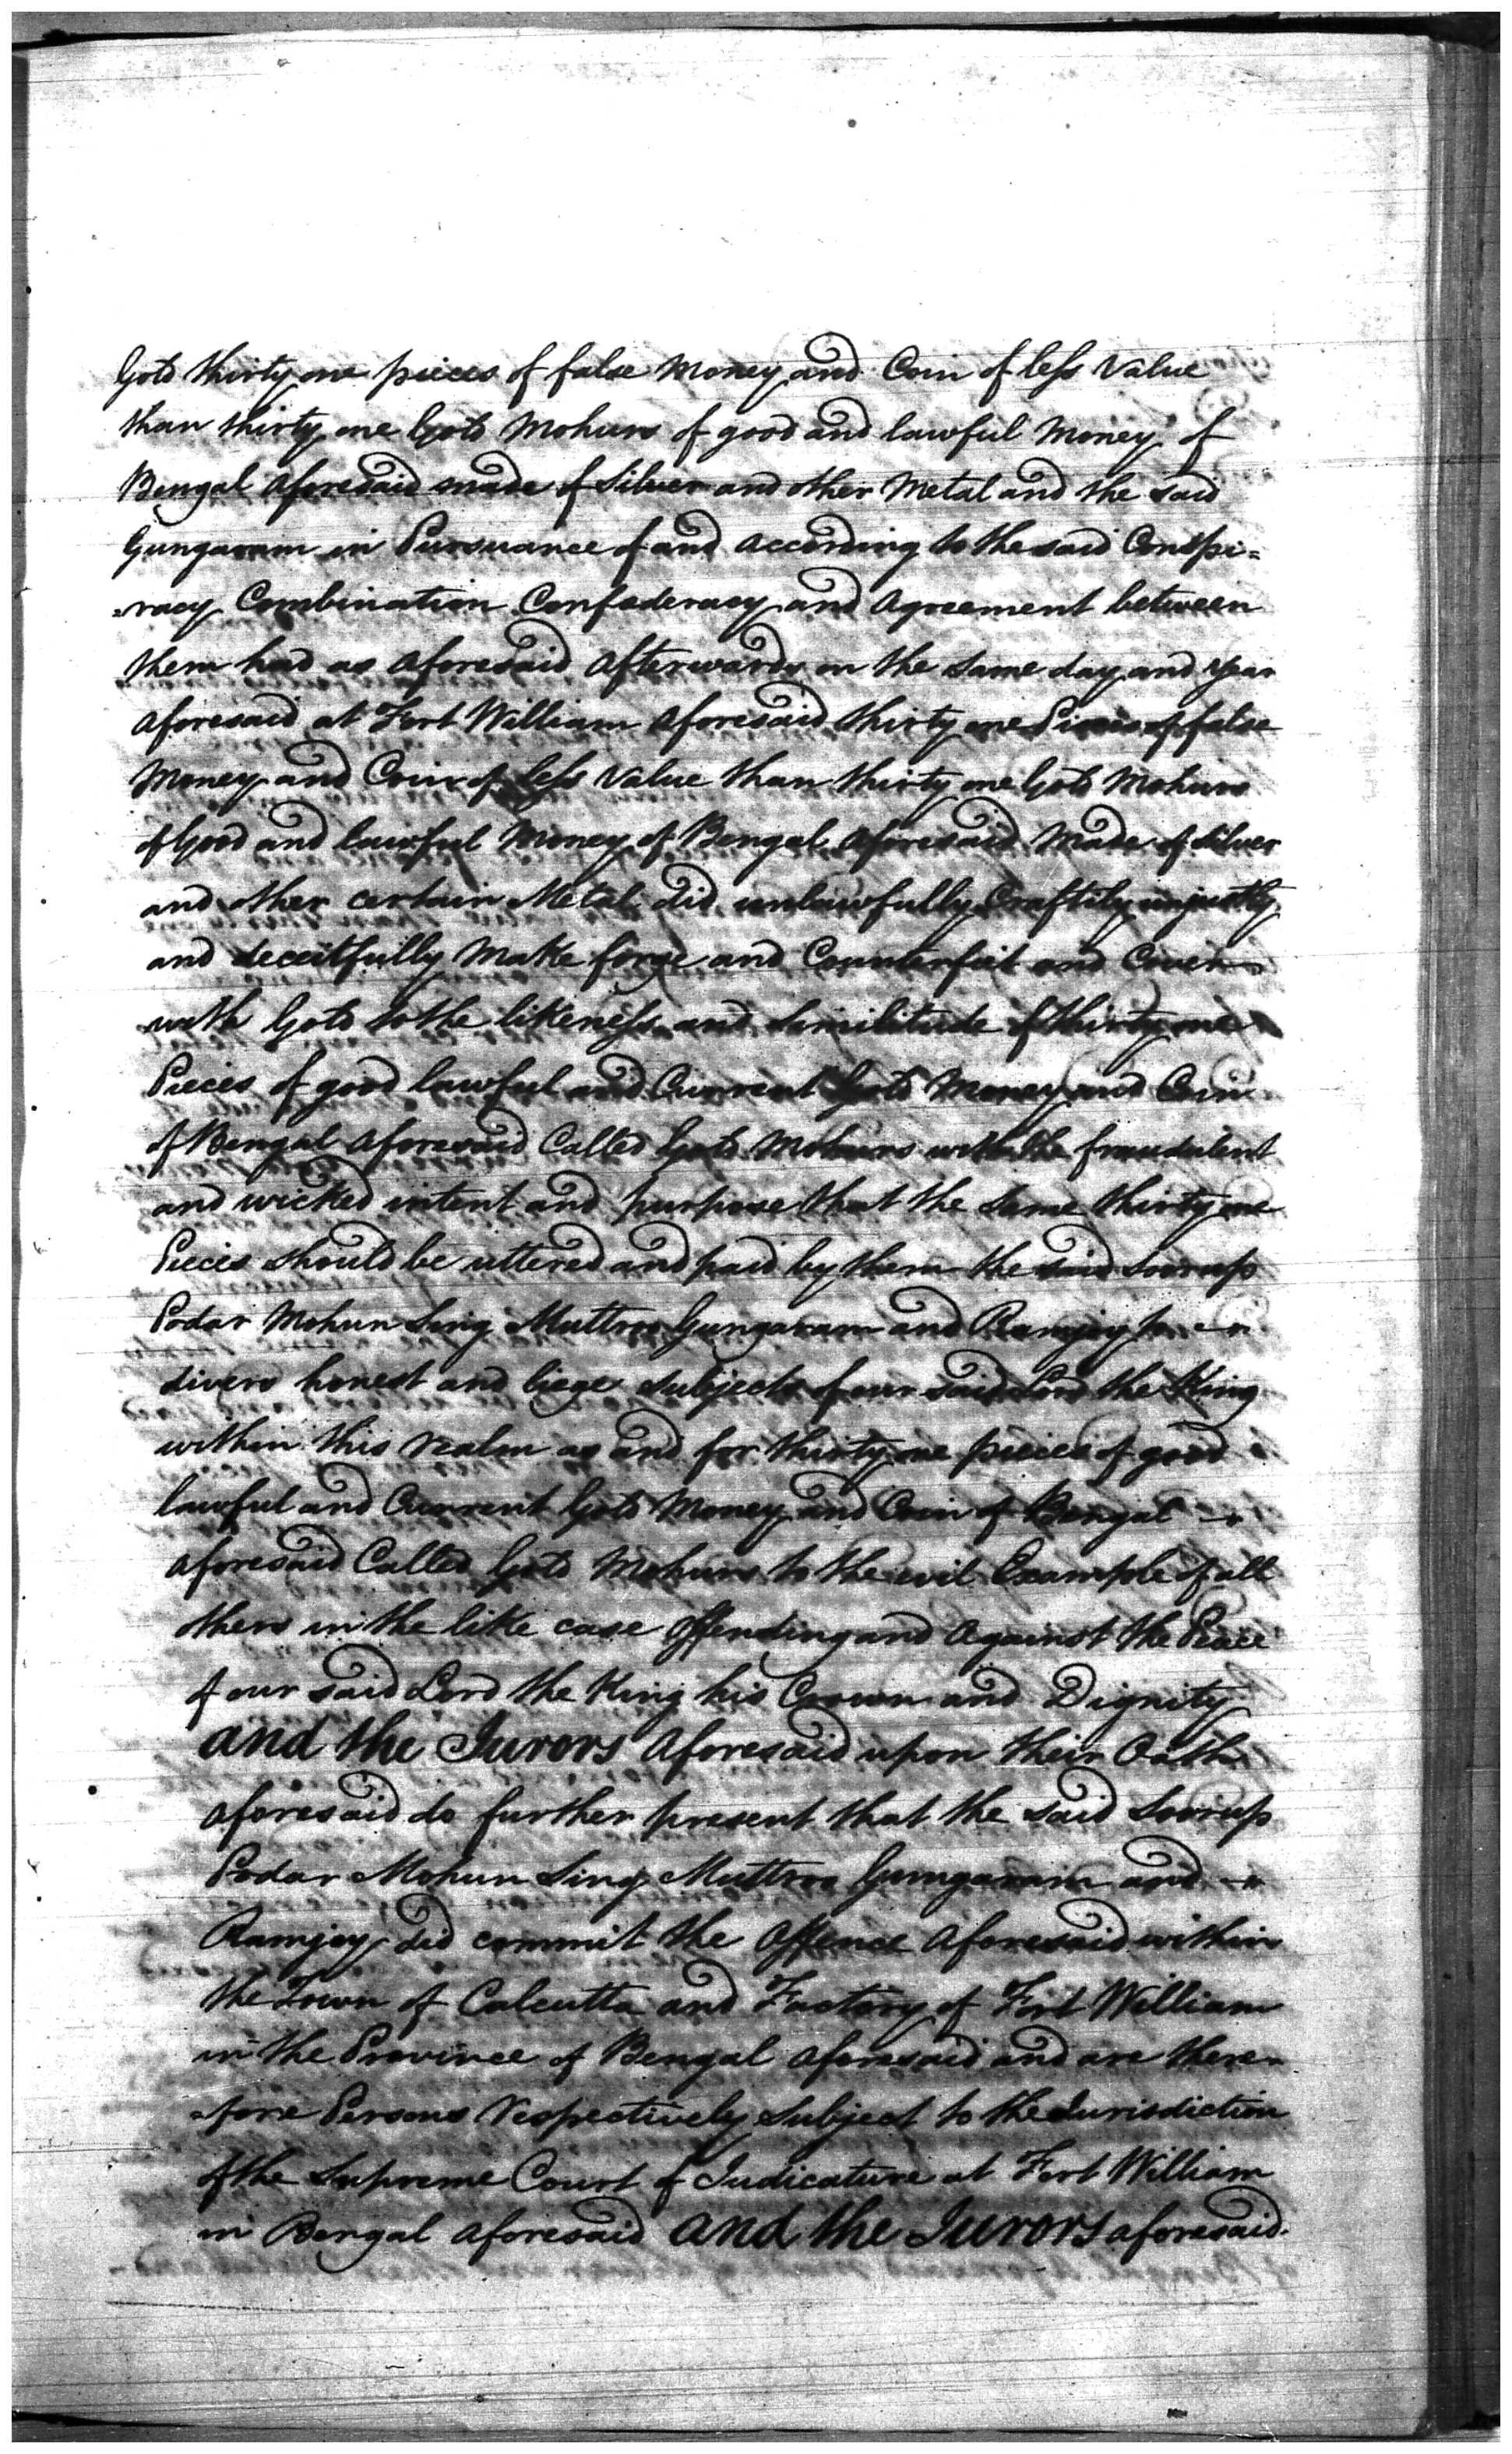 Gold thirty one pieces of false Money and Coin of less Value
than thirty one Gold Mohurs of good and lawful Money of
Bengal aforesaid made of Silver and other Metal and the said
Gungaram in Pursuance of and according to the said Conspi=
=racy Combination Confederacy and Agreement between
them had as aforesaid afterwards on the same day and Year
aforesaid at Fort William aforesaid thirty one Pieces of false
Money and Coin of less Value than thirty one Gold Mohurs
of Good and lawful Money of Bengal aforesaid Made of Silver
and other certain Metal did unlawfully Craftily unjustly
and deceitfully Make forge and Counterfeit and Cover
with Gold to the likeness and Similitude of thirty one
Pieces of good lawful and Current Gold Money and Coin
of Bengal aforesaid Called Gold Mohurs with the fraudulent
and wicked intent and purpose that the same thirty one
Pieces should be uttered and paid by them the said Soorup
Podar Mohun Sing Muttroo Gungaram and Ramjoy to
divers honest and liege subjects of our said Lord the King
within this realm as and for thirty one pieces of good
lawful and Current Gold Money and Coin of Bengal
aforesaid Called Gold Mohurs to the evil Example of all
others in the like case offending and Against the Peace
of our said Lord the King his Crown and Dignity
and the Jurors Aforesaid upon their Oath
aforesaid do further present that the said Soorup
Podar Mohun Sing Muttroo Gungaram and
Ramjoy did commit the Offence Aforesaid within
the Town of Calcutta and Factory of Fort William
in the Province of Bengal aforesaid and are there=
=fore Persons respectively subject to the Jurisdiction
of the Supreme Court of Judicature at Fort William
in Bengal aforesaid and the Jurors aforesaid